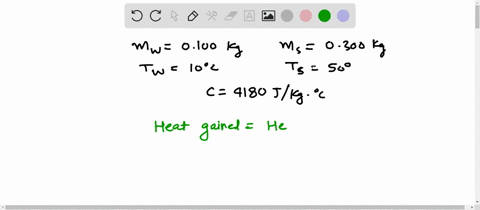 m_w = 0.100 kg    m_s = 0.300 kg
T_w = 10°C    T_s = 50°
C = 4180 J/kg·°C
Heat gained = He